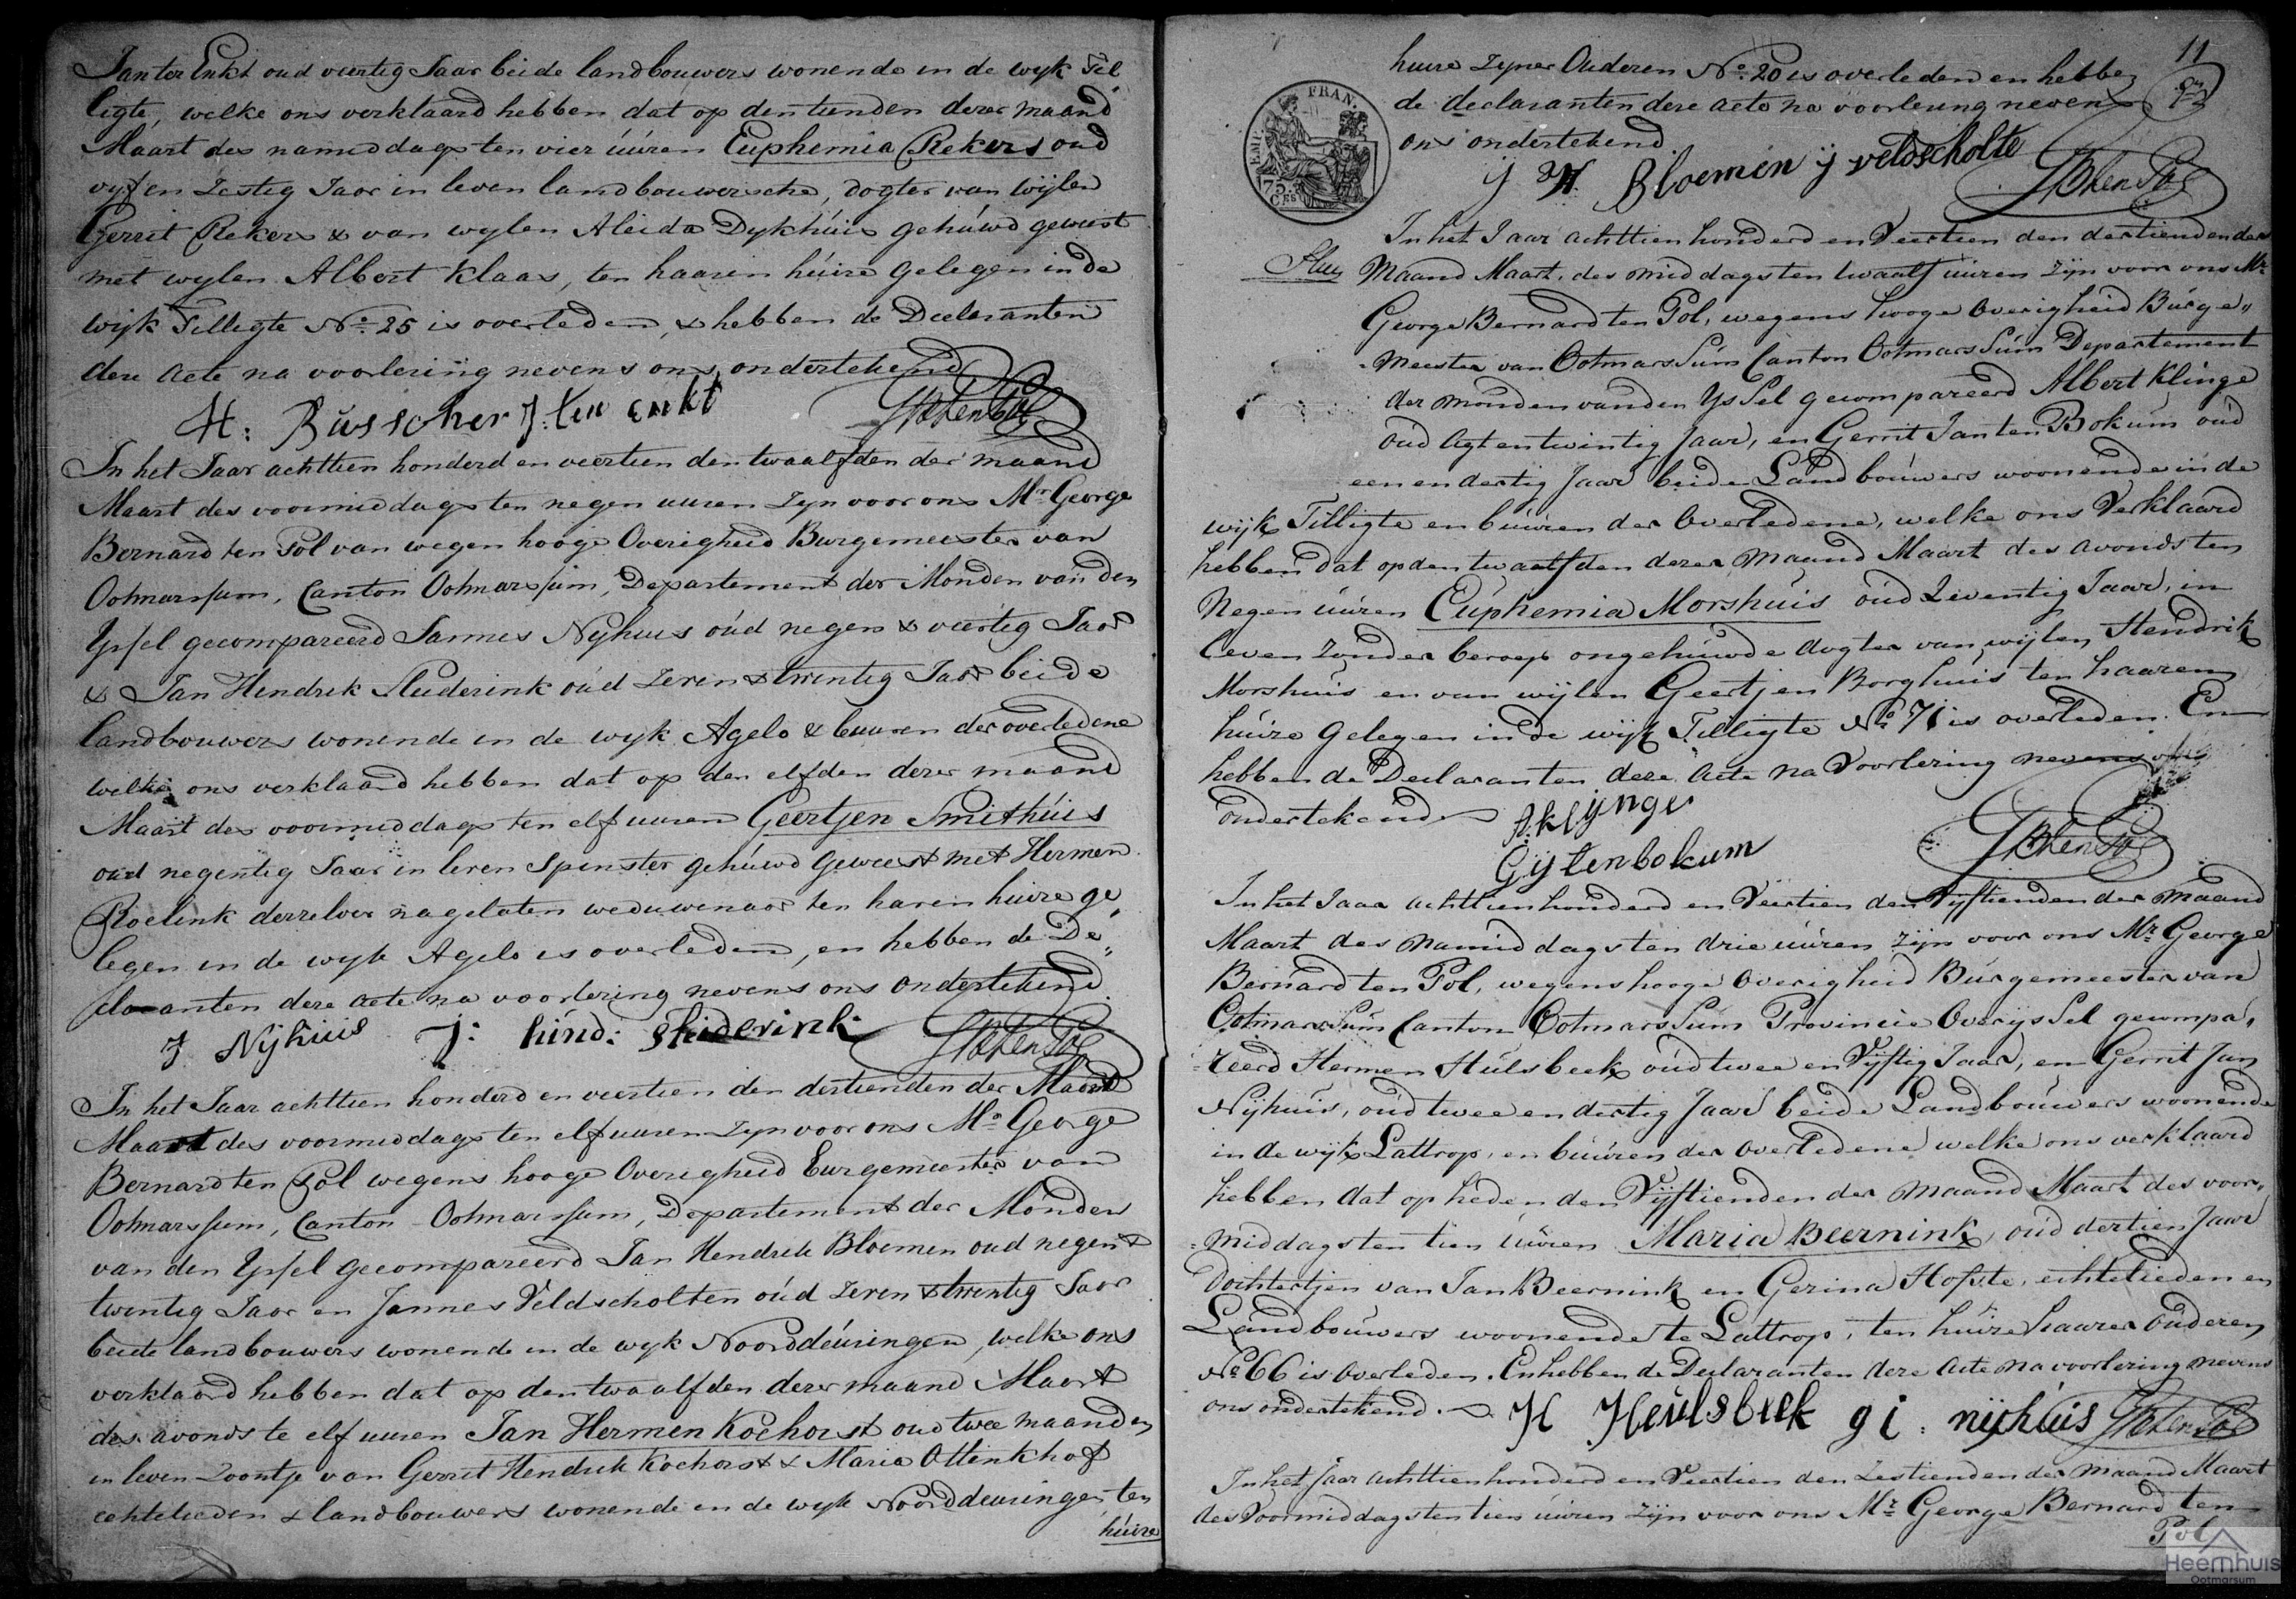 Jan ter Enkt oud veertig Jaar beide landbouwers wonende in de wyk Til
ligte, welke ons verklaard hebben dat op den tienden dezer maand
Maart des namiddags ten vier úúren Euphemia Rekers oud
vyf en Zestig Jaar in leven landbouwersche, dogter van wylen
Gerrit Rekers & van wylen Aleida Dykhúis gehúwd geweest
met wylen Albert Klaas, ten haaren húize gelegen in de
wyk Tilligte No. 25 is overleden, & hebben de Declaranten
deze acte na voorlezing nevens ons ondertekend
H: Büsscher J: ten enkt GBtenPol
In het Jaar achttien honderd en veertien den twaalfden der maand
Maart des voormiddags ten negen uuren Zyn voor ons Mr. George
Bernard ten Pol van wegen hooge Overigheid Burgemeester van
Ootmarssum, Canton Ootmarssum, Departement der Monden van den
Yssel gecompareerd Jannes Nyhuis oúd negen & veertig Jaar
& Jan Hendrik Sluderink oúd Zeven & twintig Jaar beide
landbouwers wonende in de wyk Agelo & buuren der overledene
welke ons verklaard hebben dat op den elfden dezer maand
Maart des voormiddags ten elf uuren Geertjen Smithúis
oud negentig Jaar in leven Spinster gehúwd geweest met Hermen
Roelink derzelver nagelaten weduwenaar ten haren huize ge„
legen in de wyk Agelo is overleden, en hebben de De„
claranten deze acte na voorlezing nevens ons ondertekend.
J Nijhuis J: hind: Sluderink GBtenPol
In het Jaar achttien honderd en veertien den dertienden der Maand
Maart des voormiddags ten elf uuren zyn voor ons Mr. George
Bernard ten Pol wegens hooge Overigheid Burgemeester van
Ootmarssum, Canton Ootmarssum, Departement der Monden
van den Yssel gecompareerd Jan Hendrik Bloemen oud negen &
twintig Jaar en Jannes Veldscholten oúd Zeven & twintig Jaar
beide landbouwers wonende in de wyk Noorddeúringen, welke ons
verklaard hebben dat op den twaalfden dezer maand Maart
des avonds te elf uuren Jan Hermen Kochorst oud twee maanden
in leven Zoontje van Gerrit Hendrik Kochorst & Maria Ottinkhof
echtelieden & landbouwers wonende in de wyk Noorddeuringen, ten
húize
11
huize zyner Ouderen No. 20 is overleden en hebben
de declaranten deze acte na voorlezing nevens
ons ondertekend.
J H. Bloemen J veldscholte GBtenPol
EMP. FRAN.
75.
CES
In het Jaar achttien honderd en Veertien den dertienden der
Maand Maart, des middags ten twaalf úúren Zijn voor ons Mr.
George Bernard ten Pol, wegens hooge Overigheid Búrge„
meester van Ootmarssúm Canton Ootmarssúm Departement
der monden van den Yssel gecompareerd Albert Klinge
oúd agt en twintig Jaar, en Gerrit Jan ten Bokúm oúd
een en dertig Jaar beide Landbouwers woonende in de
wijk Tilligte en búúren der Overledene, welke ons Verklaard
hebben dat op den twaalfden dezer maand Maart des avonds ten
Negen úúren Eúphemia Morshúis oúd Zeventig Jaar, in
leven Zonder beroep ongehúwde dogter van wijlen Hendrik
Morshúis en van wijlen Geertjen Borghúis ten haaren
húize gelegen in de wijk Tilligte No. 71 is overleden. En
hebben de Declaranten deze Acte na Voorlezing nevens ons
ondertekend.
A: klijnge
G ij tenbokum GBtenPol
In het Jaar achttien honderd en Veertien den Vijftienden der maand
Maart des namiddags ten drie úúren zijn voor ons Mr. George
Bernard ten Pol, wegens hooge Overigheid Búrgemeester van
Ootmarssúm Canton Ootmarssúm Provincie Overyssel gecompa„
reerd Hermen Húlsbeek oúd twee en Vijftig Jaar, en Gerrit Jan
Nijhúis, oúd twee en dertig Jaar beide Landboúwers woonende
in de wijk Lattrop, en búúren der Overledene welke ons verklaard
hebben dat op heden den Vijftienden der maand Maart des voor„
middags ten tien úúren Maria Beernink, oúd dertien Jaar
Dochtertjen van Jan Beernink en Gezina Hofste, echtelieden en
Landboúwers woonende te Lattrop, ten húize haarer Ouderen
No. 66 is overleden. En hebben de Declaranten deze Acte na voorlezing nevens
ons ondertekend. H Heülsbeek g i: nijhúis GBtenPol
In het Jaar achttien honderd en Veertien den Zestienden der maand Maart
des Voormiddags ten tien úúren zijn voor ons Mr. George Bernard ten
Pol
Heemhuis
Ootmarsum